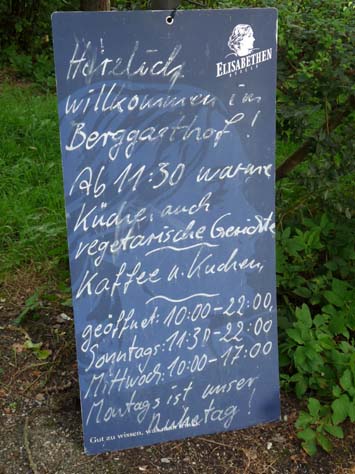 ELISABETHEN
QUELLE
Herzlich
willkommen im
Berggasthof!
Ab 11:30 warme
Küche, auch
vegetarische Gerichte
Kaffee u. Kuchen,
geöffnet: 10:00-22:00,
Sonntags: 11:30-22:00
Mittwoch: 10:00-17:00
Montags ist unser
Ruhetag!
Gut zu wissen,